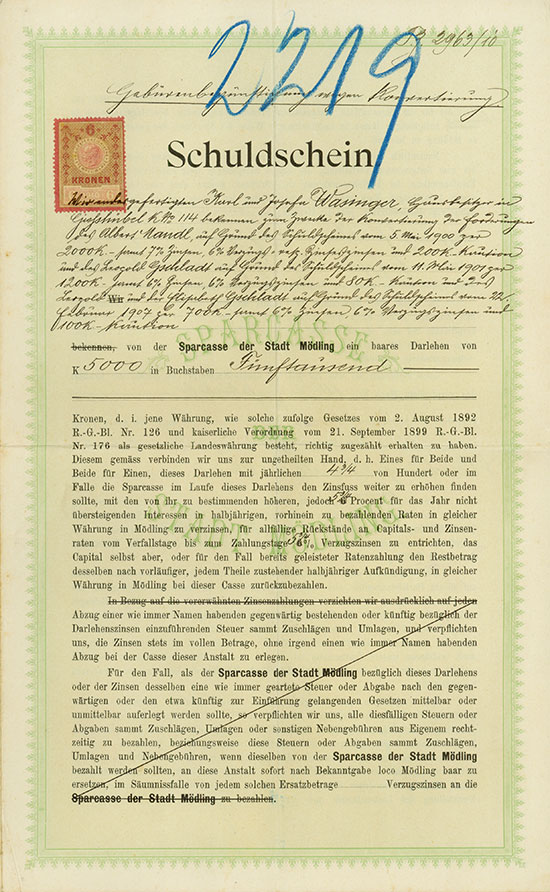 2963/10
2219
Gebürenbegünstigung wegen Konvertierung
Schuldschein
6
KRONEN
Wir endesgefertigten Karl und Josefa Wasinger, Hausbesitzer in
Gießhübel K No 114 bekennen zum Zwecke der Konvertierung der Forderungen
des Albert Mandl, auf Grund des Schuldscheines vom 5. Mai 1900 per
2000K - samt 7% Zinsen, 6% Verzugs- resp. Zinseszinsen und 200K - Kaution
und des Leopold Gschladt auf Grund des Schuldscheines vom 11. Mai 1901 per
1200K - samt 6% Zinsen, 6% Verzugszinsen und 80K - Kaution und des
Leopold Wir und der Elisabeth Gschladt auf Grund des Schuldscheines vom 22.
Februar 1907 per 700K - samt 6% Zinsen, 6% Verzugszinsen und
100K - Kaution
SPARCASSE
bekennen, von der Sparcasse der Stadt Mödling ein baares Darlehen von
K 5000 in Buchstaben Fünftausend
Kronen, d. i. jene Währung, wie solche zufolge Gesetzes vom 2. August 1892
R.-G.-Bl. Nr. 126 und kaiserliche Verordnung vom 21. September 1899 R.-G.-Bl.
DER
Nr. 176 als gesetzliche Landeswährung besteht, richtig zugezählt erhalten zu haben.
Diesem gemäss verbinden wir uns zur ungetheilten Hand, d. h. Eines für Beide und
Beide für Einen, dieses Darlehen mit jährlichen 4 3/4 von Hundert oder im
Falle die Sparcasse im Laufe dieses Darlehens den Zinsfuss weiter zu erhöhen finden
sollte, mit den von ihr zu bestimmenden höheren, jedoch 5 3/4 6 Procent für das Jahr nicht
übersteigenden Interessen in halbjährigen, vorhinein zu bezahlenden Raten in gleicher
STADT MÖDLING
Währung in Mödling zu verzinsen, für allfällige Rückstände an Capitals- und Zinsen-
raten vom Verfallstage bis zum Zahlungstage 5 3/4 6% Verzugszinsen zu entrichten, das
Capital selbst aber, oder für den Fall bereits geleisteter Ratenzahlung den Restbetrag
desselben nach vorläufiger, jedem Theile zustehender halbjähriger Aufkündigung, in gleicher
Währung in Mödling bei dieser Casse zurückzubezahlen.
In Bezug auf die vorerwähnten Zinsenzahlungen verzichten wir ausdrücklich auf jeden
Abzug einer wie immer Namen habenden gegenwärtig bestehenden oder künftig bezüglich der
Darlehenszinsen einzuführenden Steuer sammt Zuschlägen und Umlagen, und verpflichten
uns, die Zinsen stets im vollen Betrage, ohne irgend einen wie immer Namen habenden
Abzug bei der Casse dieser Anstalt zu erlegen.
Für den Fall, als der Sparcasse der Stadt Mödling bezüglich dieses Darlehens
oder der Zinsen desselben eine wie immer geartete Steuer oder Abgabe nach den gegen-
wärtigen oder den etwa künftig zur Einführung gelangenden Gesetzen mittelbar oder
unmittelbar auferlegt werden sollte, so verpflichten wir uns, alle diesfälligen Steuern oder
Abgaben sammt Zuschlägen, Umlagen oder sonstigen Nebengebühren aus Eigenem recht-
zeitig zu bezahlen, beziehungsweise diese Steuern oder Abgaben sammt Zuschlägen,
Umlagen und Nebengebühren, wenn dieselben von der Sparcasse der Stadt Mödling
bezahlt werden sollten, an diese Anstalt sofort nach Bekanntgabe loco Mödling baar zu
ersetzen, im Säumnissfalle von jedem solchen Ersatzbetrage Verzugszinsen an die
Sparcasse der Stadt Mödling zu bezahlen.